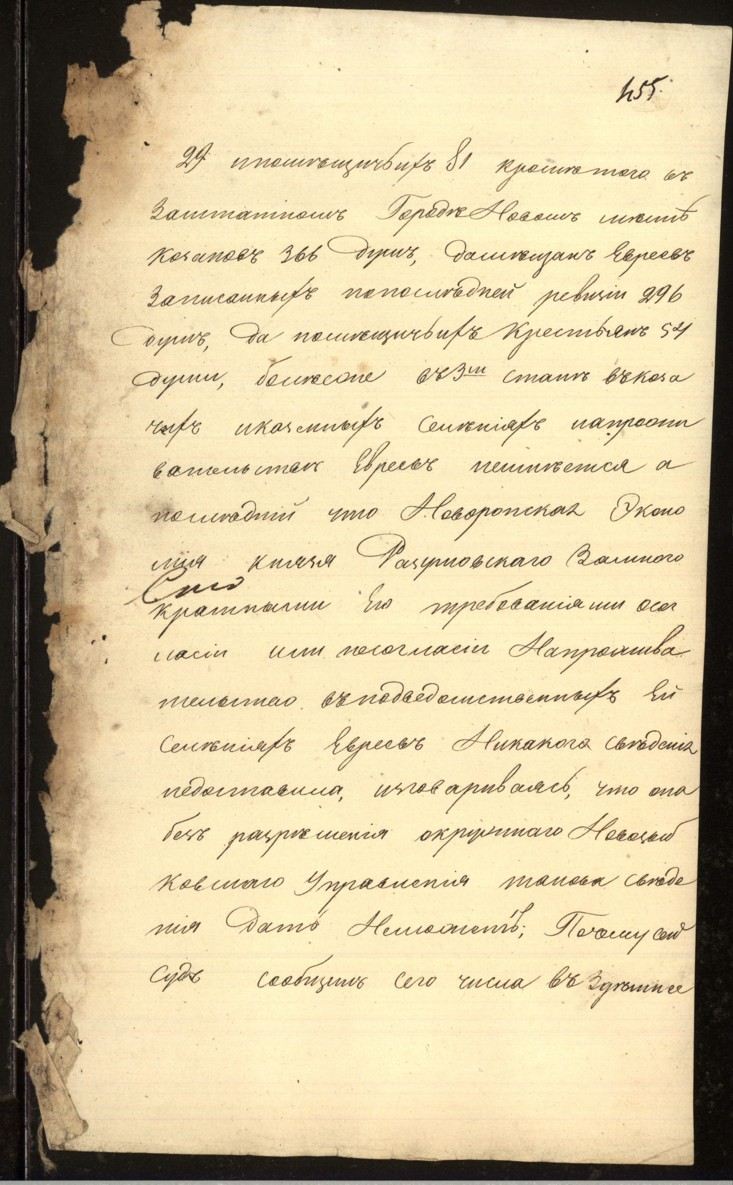 455.
29 ипомѣщичьихъ 81 кромѣтого въ
Заштатномъ Городкѣ Новомъ мѣстѣ
козаковъ 366 душъ, да мѣщанъ Евреевъ
Записанныхъ попослѣдней ревизіи 296
душъ, да помѣщичьихъ Крестьянъ 54
души, болѣе въ 3мъ станѣ въ коза
чихъ и казенныхъ Селеніяхъ
вательствѣ Евреевъ неимѣется а
послѣдній что Новоропская Эконо
мія князя Разумовскаго Замного
Сто
кратными Его требованіями осог
ласіи или несогласіи Напрожива
тельство въ подведомственныхъ Ей
Селеніяхъ Евреевъ Никакого свѣденія
недоставила, изговариваясь, что она
безъ разрѣшенія окружнаго Новозыб
Ковскаго Управленія такова свѣде
нія Дать Неможетъ; Почему сей
Судъ сообщилъ сего числа въ Здѣшнее